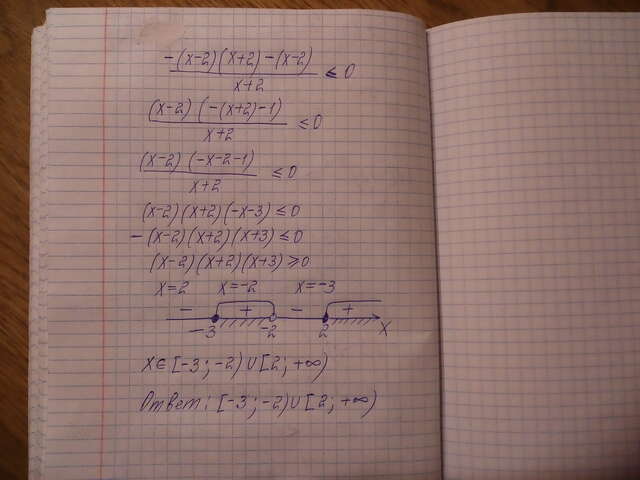 -(x-2)(x+2)-(x-2)
x+2
≤ 0
(x-2)(-(x+2)-1)
x+2
≤ 0
(x-2)(-x-2-1)
x+2
≤ 0
(x-2)(x+2)(-x-3) ≤ 0
-(x-2)(x+2)(x+3) ≤ 0
(x-2)(x+2)(x+3) ≥ 0
x=2 x=-2 x=-3
- + - +
-3 -2 2 x
x∈[-3;-2)∪[2;+∞)
Ответ: [-3;-2)∪[2;+∞)